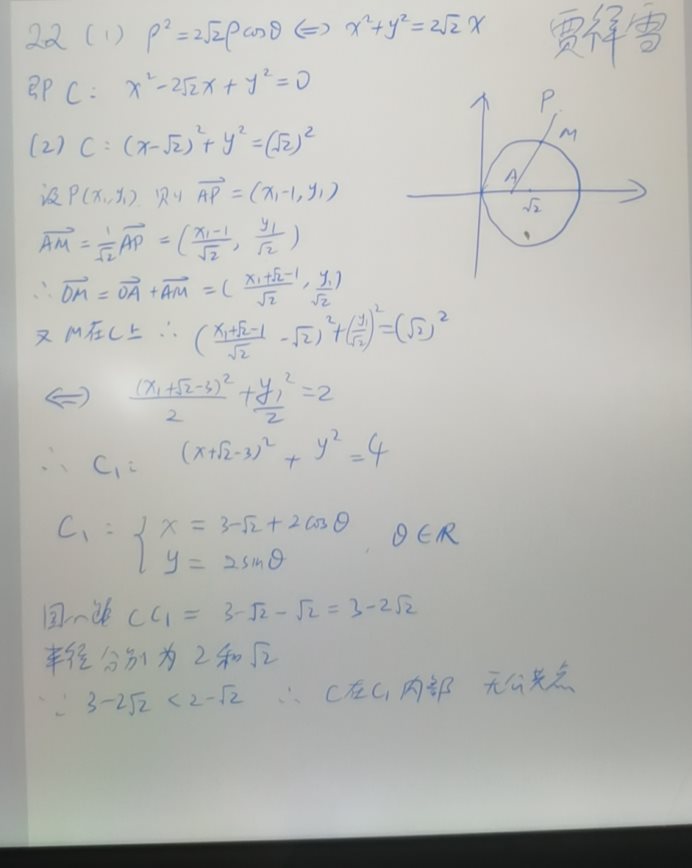 22 (1) ρ²=2√2ρcosθ ⟺ x²+y²=2√2x
贾得雪
即 C: x²-2√2x+y²=0
(2) C: (x-√2)²+y²=(√2)²
P
M
A
√2
设P(x₁,y₁) 则 AP→=(x₁-1,y₁)
AM→=1/√2 AP→=((x₁-1)/√2, y₁/√2)
∴ OM→=OA→+AM→=((x₁+√2-1)/√2, y₁/√2)
又 M在C上 ∴ ((x₁+√2-1)/√2-√2)²+(y₁/√2)²=(√2)²
⟺ (x₁+√2-3)²/2+y₁²/2=2
∴ C₁: (x+√2-3)²+y²=4
C₁: { x=3-√2+2cosθ
y=2sinθ , θ∈R
圆心距 CC₁=3-√2-√2=3-2√2
半径分别为2和√2
∵ 3-2√2<2-√2 ∴ C在C₁内部 无公共点